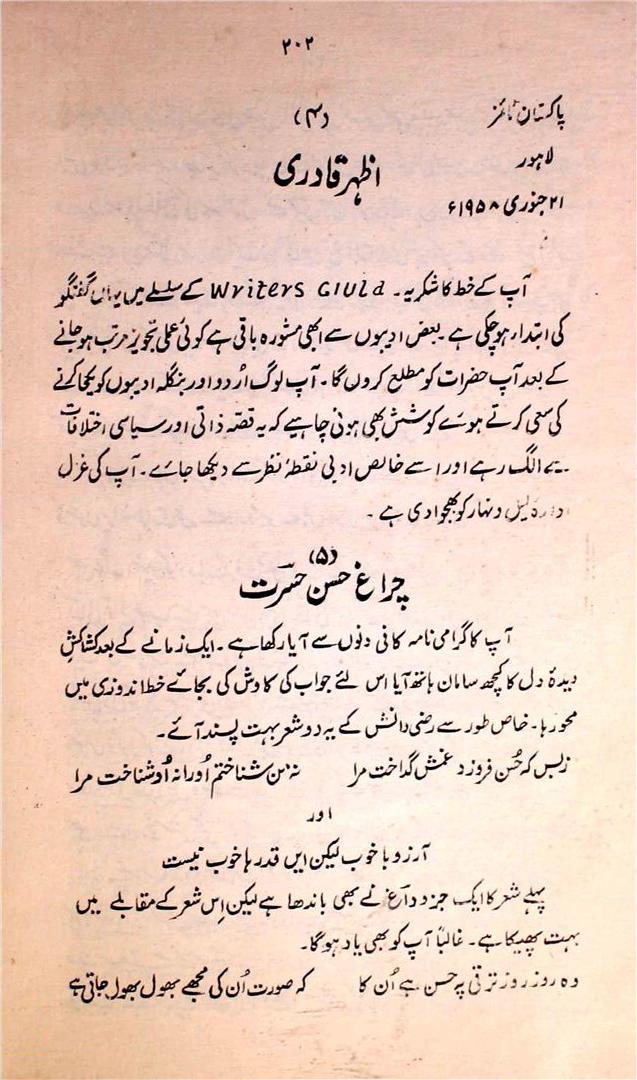 ۲۰۲
پاکستان ٹائمز
(۴)
لاہور
اظہر قادری
۲۱ جنوری ۱۹۵۸ء
آپ کے خط کا شکریہ۔ Writers Giuld کے سلسلے میں یہاں گفتگو
کی ابتدار ہوچکی ہے۔ بعض ادیبوں سے ابھی مشورہ باقی ہے کوئی عملی تجویز مرتب ہوجانے
کے بعد آپ حضرات کو مطلع کروں گا۔ آپ لوگ اُردو اور بنگلہ ادیبوں کو یکجا کرنے
کی سعی کرتے ہوئے کوشش بھی ہونی چاہیے کہ یہ قصہ ذاتی اور سیاسی اختلافات
سے الگ رہے اور اسے خالص ادبی نقطۂ نظر سے دیکھا جائے۔ آپ کی غزل
ادارہ لیل و نہار کو بھجوا دی ہے۔
(۵)
چراغ حسن حسرت
آپ کا گرامی نامہ کافی دنوں سے آیا رکھا ہے۔ ایک زمانے کے بعد کشاکشِ
دیدۂ دل کا کچھ سامان ہاتھ آیا اس لئے جواب کی کاوش کی بجائے خط اندوزی میں
محو رہا۔ خاص طور سے رضی دانش کے یہ دو شعر بہت پسند آئے۔
زبس کہ حُسن فزود غمش گداخت مرا نہ من شناختم اُورا نہ اُو شناخت مرا
اور
آرزو ہا خوب لیکن ایں قدر ہا خوب نیست
پہلے شعر کا ایک جزو داغ نے بھی باندھا ہے لیکن اِس شعر کے مقابلے میں
بہت پھیکا ہے۔ غالباً آپ کو بھی یاد ہوگا۔
وہ روز روز ترقی پہ حسن ہے اُن کا کہ صورت اُن کی مجھے بھول بھول جاتی ہے